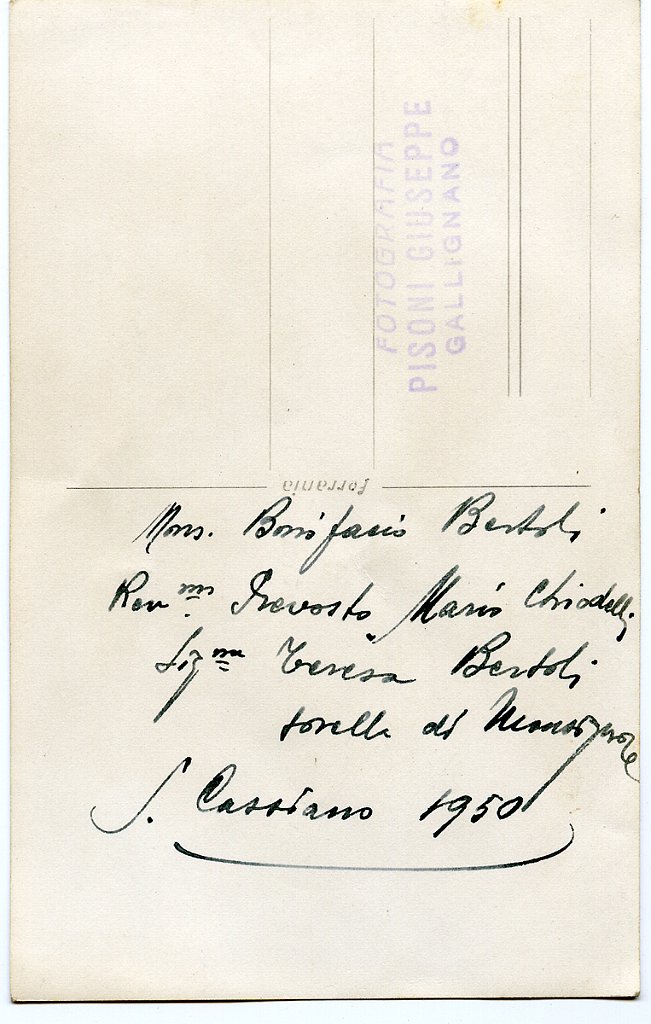 FOTOGRAFIA
PISONI GIUSEPPE
GALLIGNANO
ferrania
Mons. Bonifacio Bertoli
Rev.mo Prevosto Mario Chiodelli
Sig.na Teresa Bertoli
sorella di Monsignore
S. Cassiano 1950